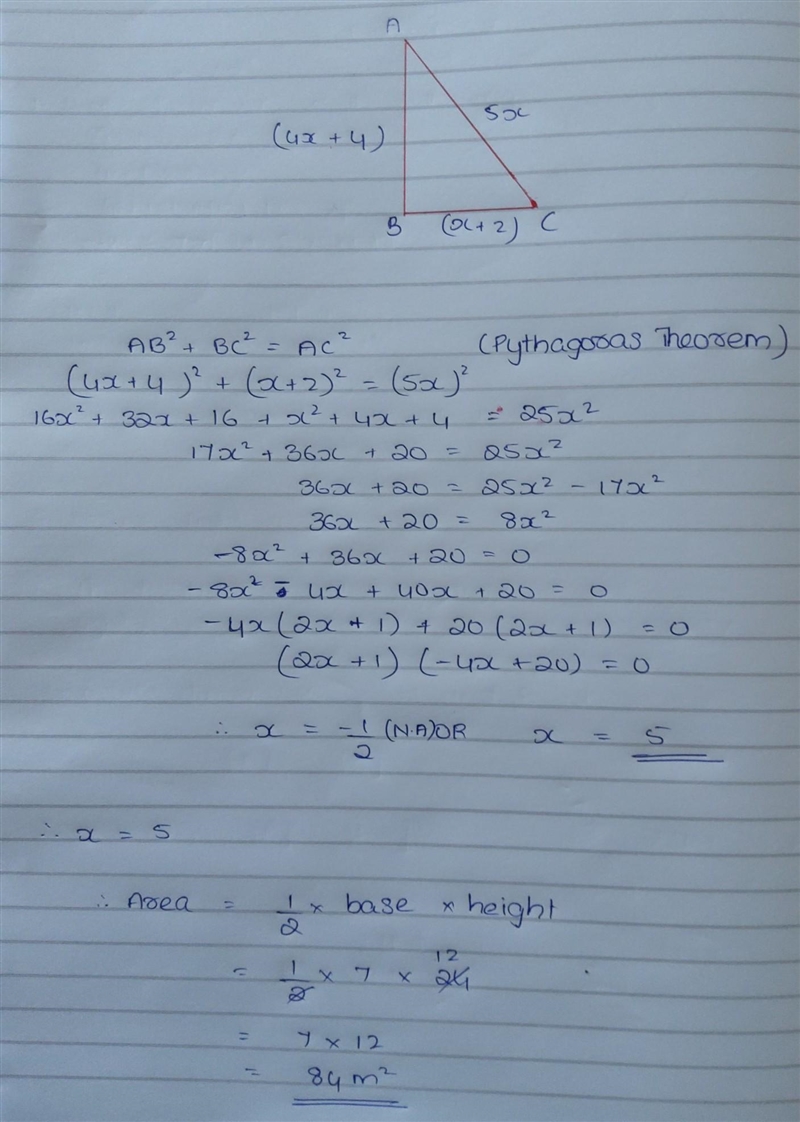 A
(4x + 4)
5x
B
(x + 2)
C
AB² + BC² = AC² (Pythagoras Theorem)
(4x + 4)² + (x + 2)² = (5x)²
16x² + 32x + 16 + x² + 4x + 4 = 25x²
17x² + 36x + 20 = 25x²
36x + 20 = 25x² - 17x²
36x + 20 = 8x²
-8x² + 36x + 20 = 0
-8x² - 4x + 40x + 20 = 0
-4x(2x + 1) + 20(2x + 1) = 0
(2x + 1) (-4x + 20) = 0
∴ x = -1/2 (N.A) OR x = 5
∴ x = 5
∴ Area = 1/2 × base × height
= 1/2 × 7 × 24 12
= 7 × 12
= 84 m²